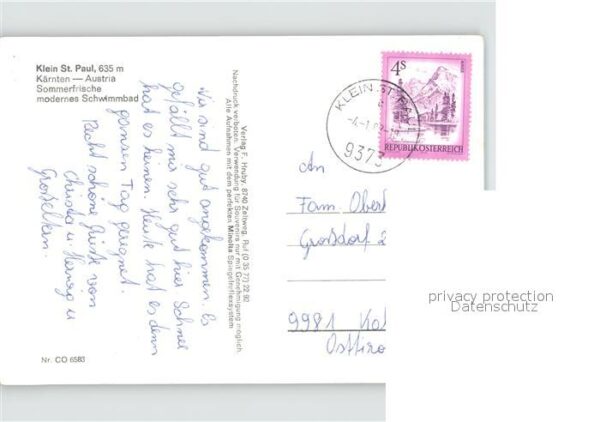 Klein St. Paul, 635 m
Kärnten — Austria
Sommerfrische
modernes Schwimmbad
Wir sind gut angekommen. Es
gefällt mir sehr gut hier Schnee
hat es keinen. Heute hat es den
ganzen Tag geregnet.
Recht schöne Grüße von
Christa u. Herzog u
Großeltern.
Nr. CO 6583
Verlag F. Hruby, 8740 Zeltweg, Ruf (0 35 77) 22 90
Nachdruck verboten. Verwendung für Souvenirs nur mit Genehmigung möglich.
Alle Aufnahmen mit dem perfekten Minolta Spiegelreflexsystem
4 S
REPUBLIK ÖSTERREICH
KLEIN ST. PAUL
9373
An
Fam. Obert
Großdorf 2
9981 Kal
Osttiro
privacy protection
Datenschutz